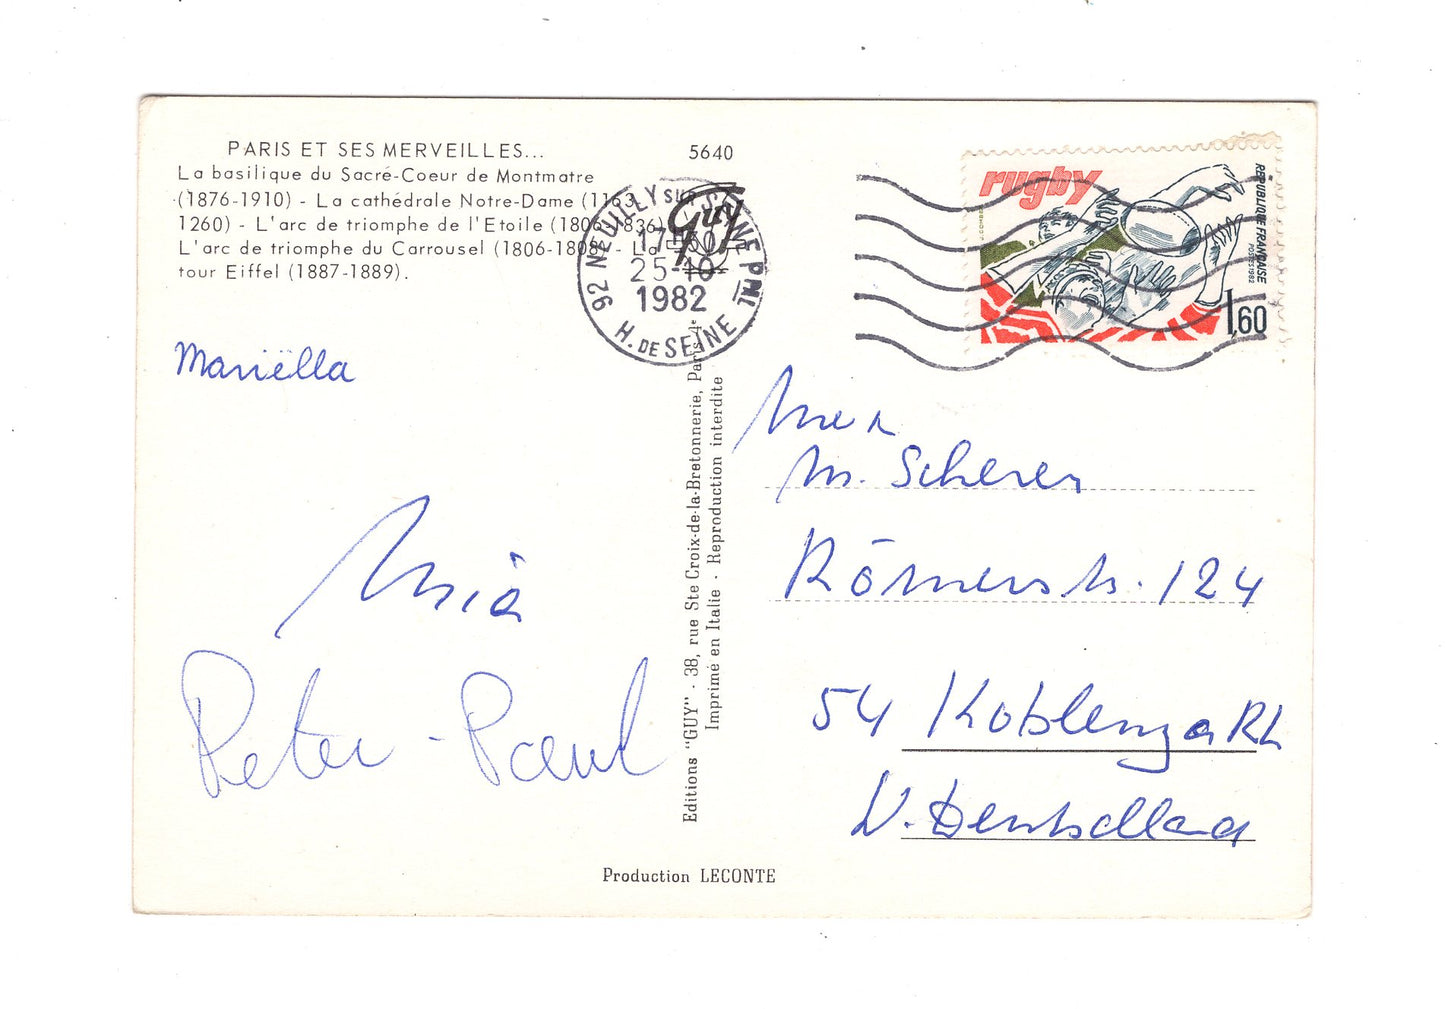 PARIS ET SES MERVEILLES...
5640
La basilique du Sacré-Coeur de Montmatre
(1876-1910) - La cathédrale Notre-Dame (1163
1260) - L'arc de triomphe de l'Etoile (1806-1836)
L'arc de triomphe du Carrousel (1806-1808) - La
tour Eiffel (1887-1889).
Guy
92 NEUILLY SUR SEINE PPAL
17H30
25-10
1982
H. DE SEINE
rugby
REPUBLIQUE FRANÇAISE
POSTES 1982
1,60
Mariëlla
Mia
Peter-Paul
Editions "GUY" - 38, rue Ste Croix-de-la-Bretonnerie, Paris 4e
Imprimé en Italie - Reproduction interdite
M. Scherer
Römerstr. 124
54 Koblenz a Rh
W. Deutschland
Production LECONTE